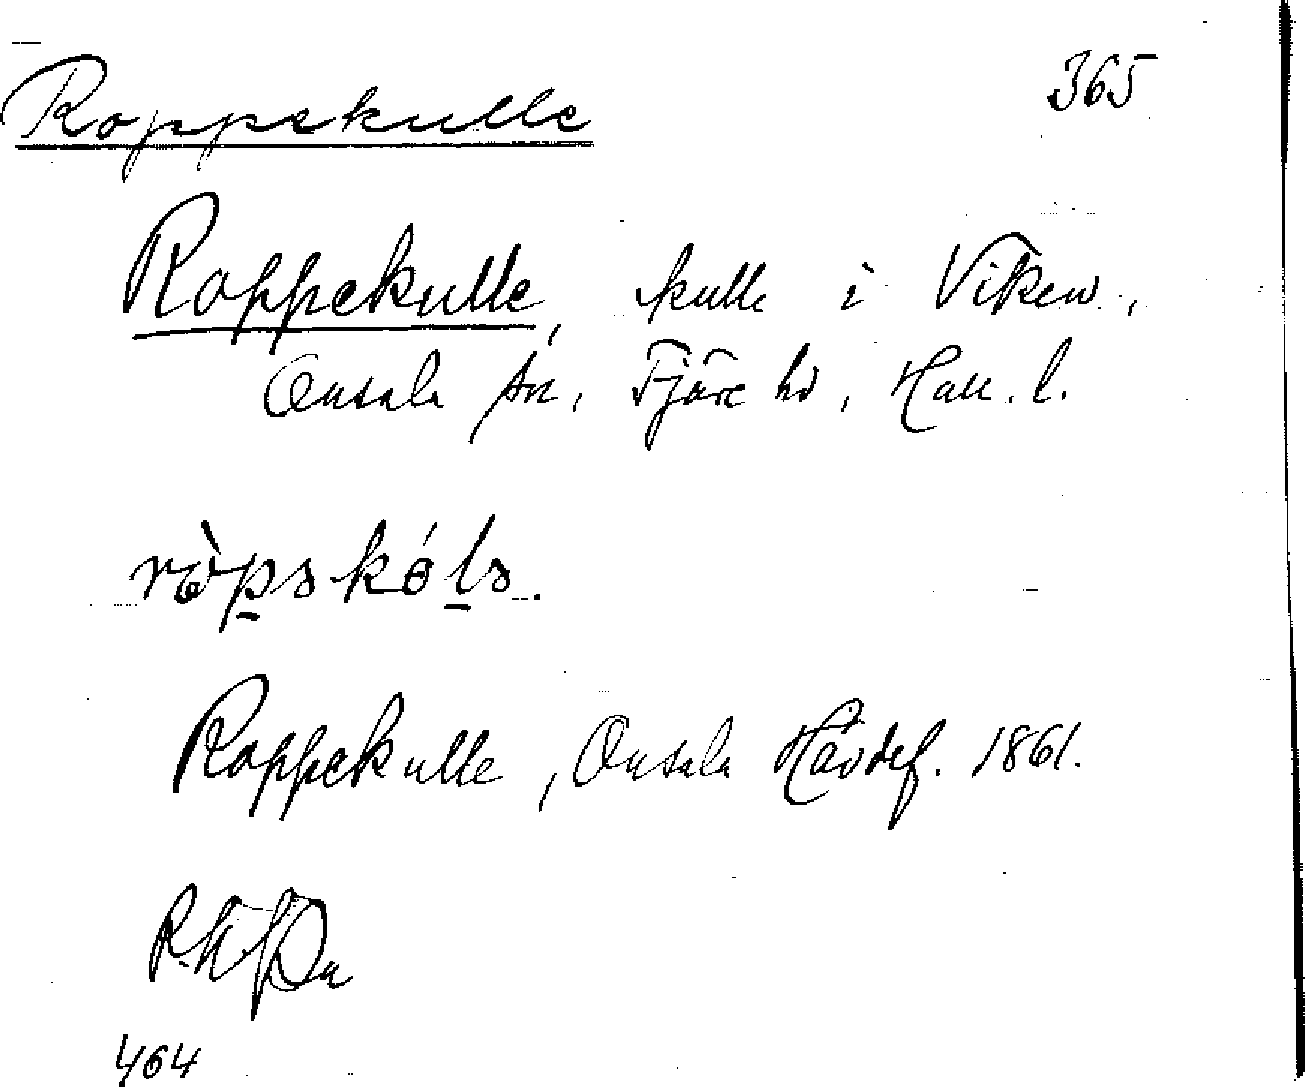 Roppekulle 365
Roppekulle, kulle i Viken,
Onsala sn, Fjäre hd, Hall. l.
ròpskóls.
Roppekulle, Onsala Hävdef. 1861.
464